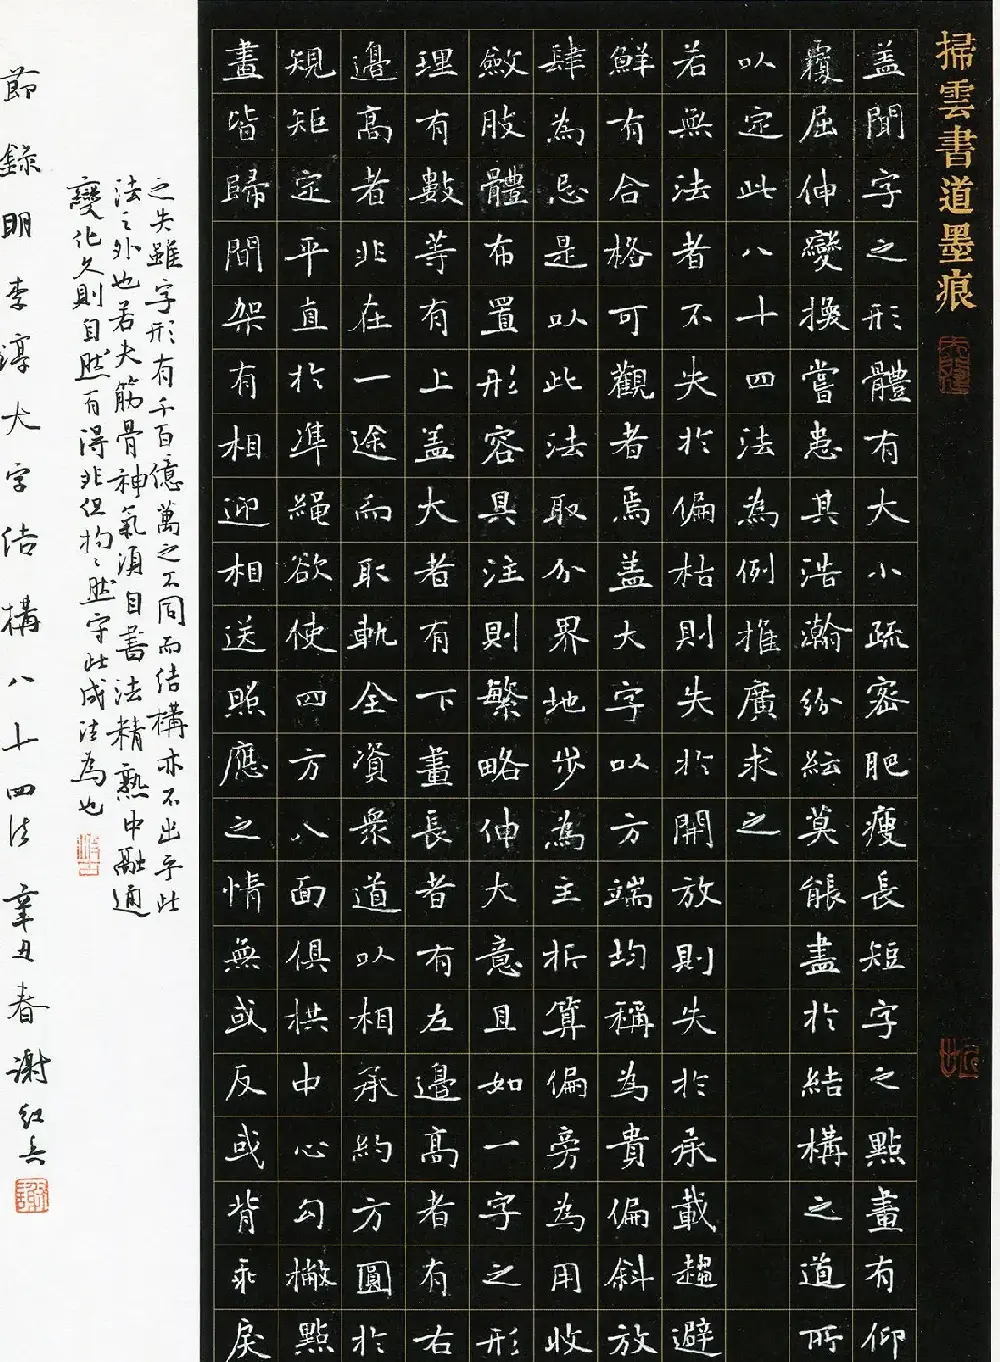 掃雲書道墨痕
盖聞字之形體有大小疏密肥瘦長短字之點畫有仰
覆屈伸變換嘗患其浩瀚紛紜莫能盡於結構之道所
以定此八十四法為例推廣求之
若無法者不失於偏枯則失於開放則失於承載趨避
鮮有合格可觀者焉盖大字以方端均稱為貴偏斜放
肆為忌是以此法取分界地步為主折算偏旁為用收
斂肢體布置形容具注則繁略伸大意且如一字之形
理有數等有上盖大者有下畫長者有左邊高者有右
邊高者非在一途而取軌全資眾道以相承約方圓於
規矩定平直於準繩欲使四方八面俱拱中心勾撇點
畫皆歸間架有相迎相送照應之情無或反或背乖戾
之失雖字形有千百億萬之不同而结構亦不出乎此
法之外也若夫筋骨神氣須自書法精熟中融通
變化久則自然有得非但拘拘然守此成法為也
節錄明李淳大字结構八十四法 辛丑春 謝红兵